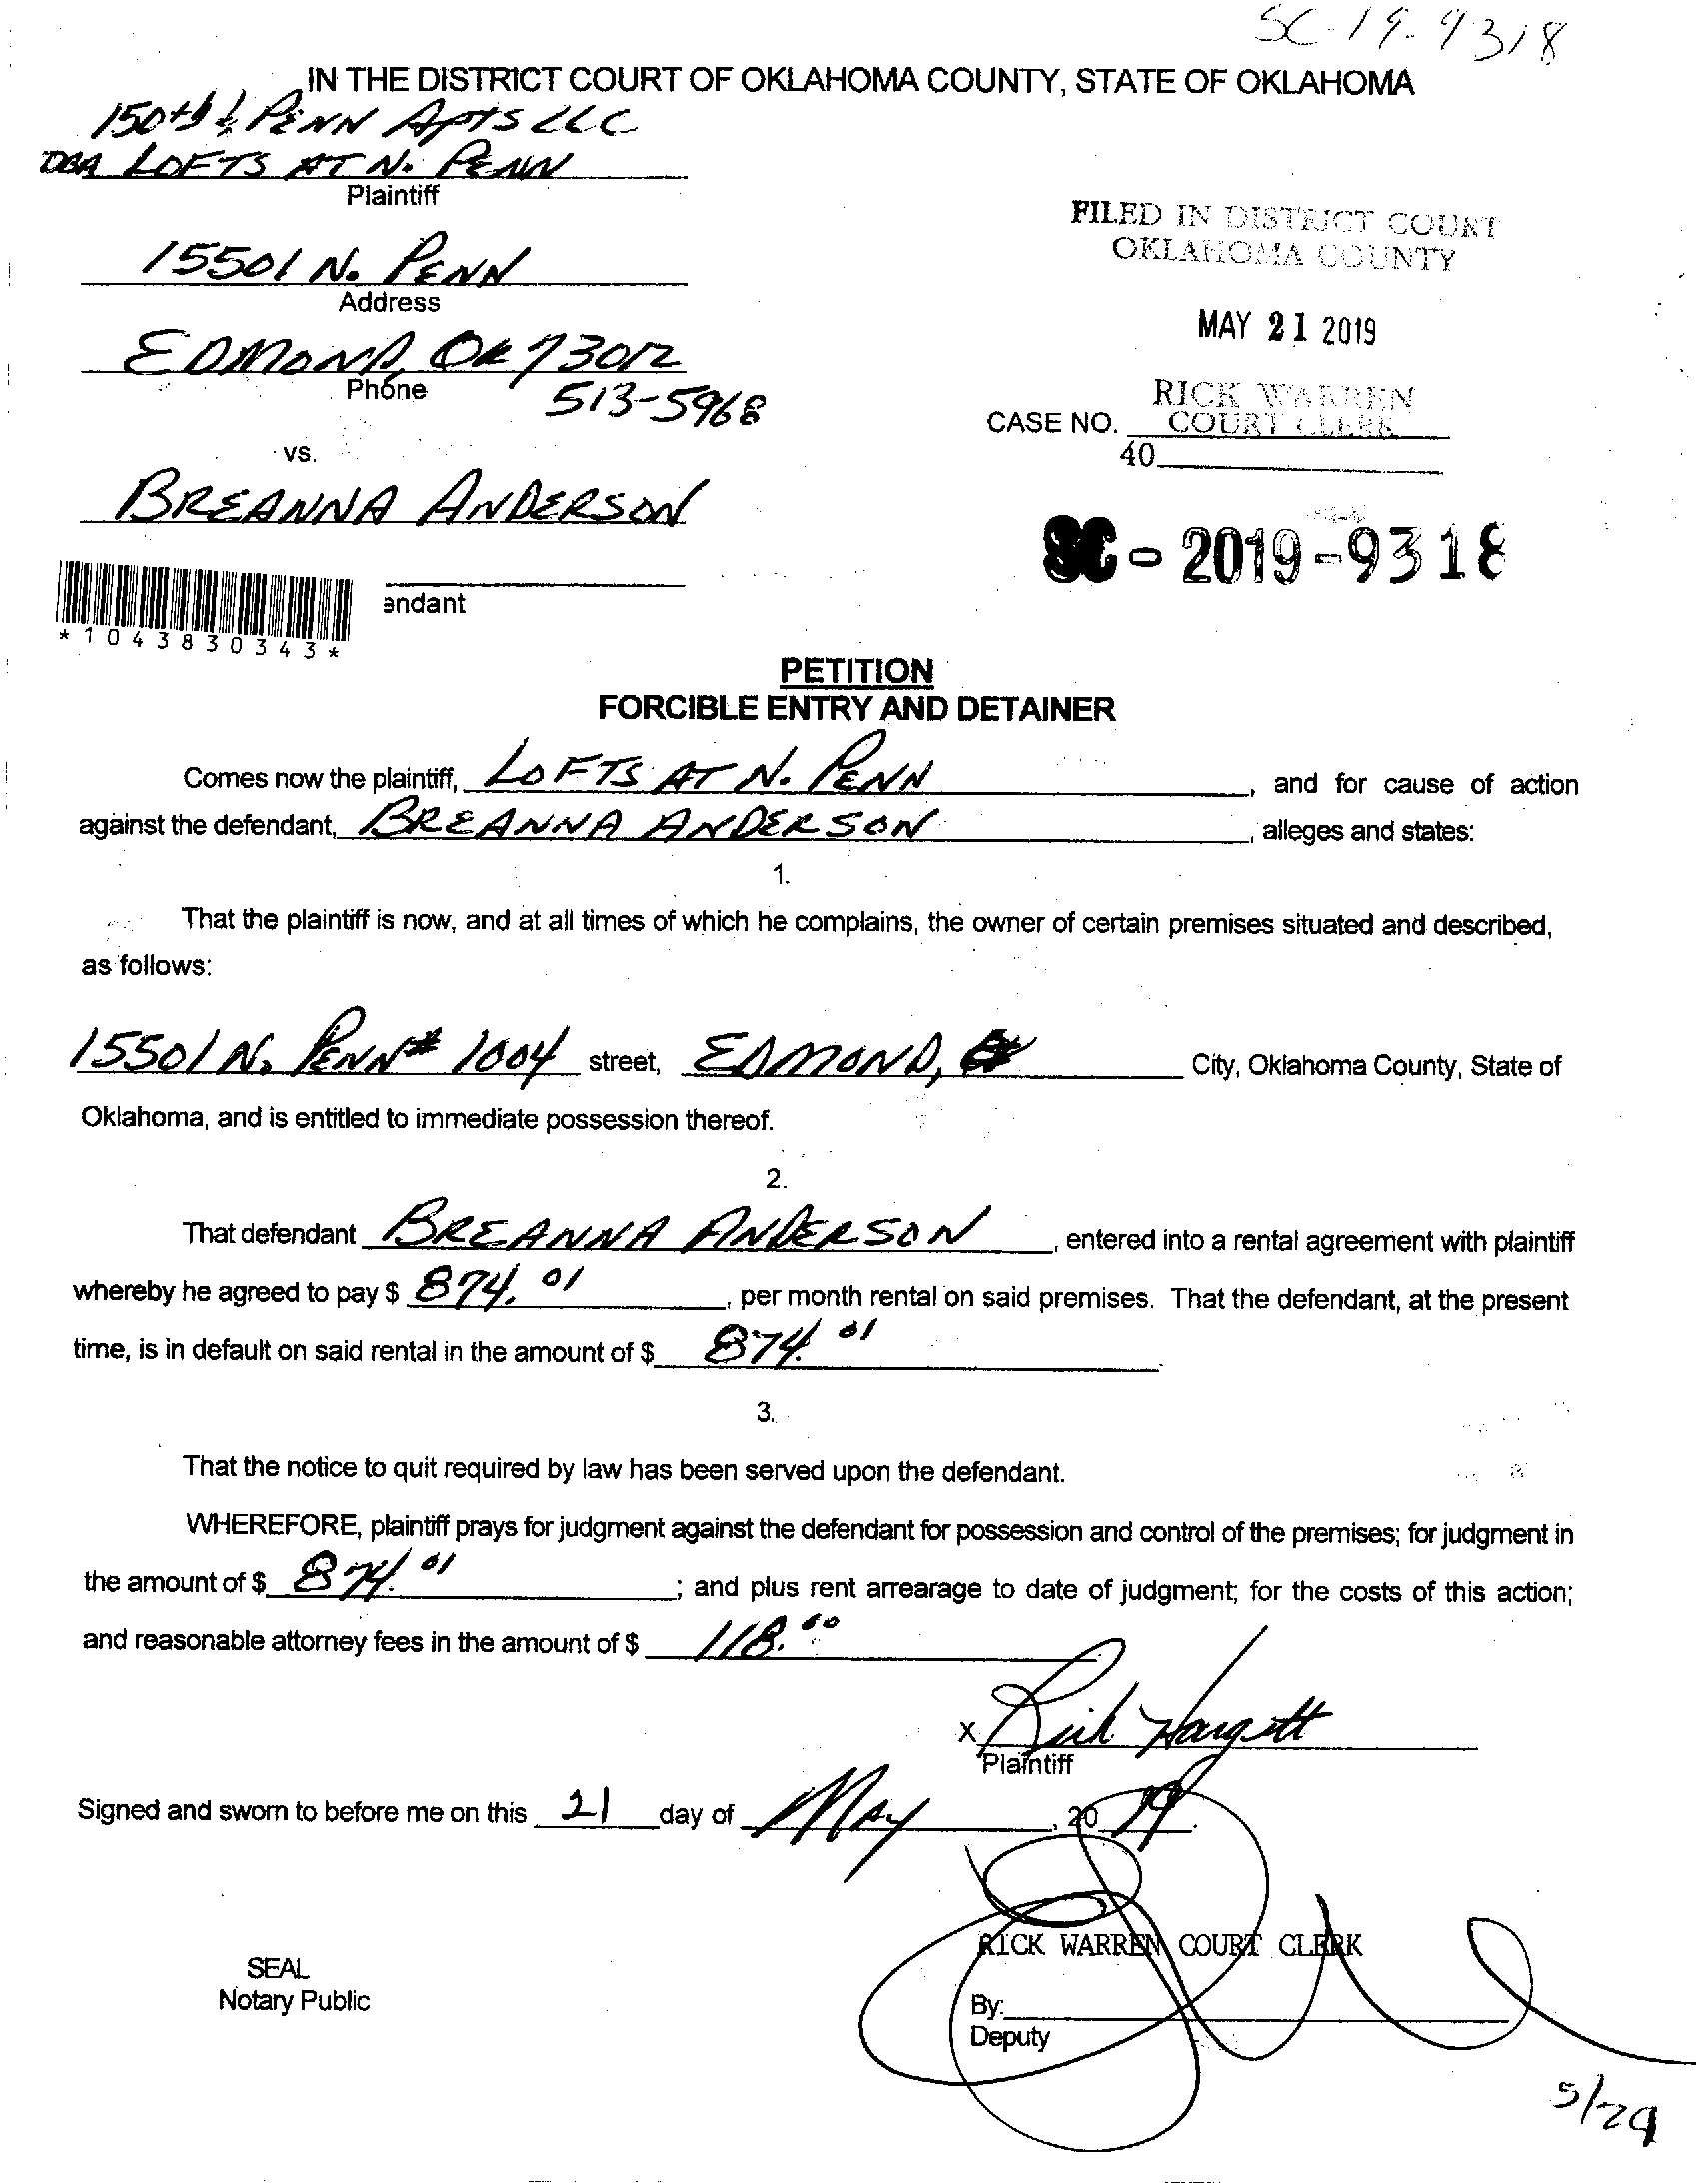 SC-19-9318
IN THE DISTRICT COURT OF OKLAHOMA COUNTY, STATE OF OKLAHOMA
150th & PENN APTS LLC
DBA LOFTS AT N. PENN
Plaintiff
FILED IN DISTRICT COURT
OKLAHOMA COUNTY
15501 N. PENN
Address
MAY 21 2019
EDMOND, OK 73012
Phone
513-5968
RICK WARREN
COURT CLERK
CASE NO.
40
vs.
BREANNA ANDERSON
SC - 2019 - 9318
endant
*1043830343*
PETITION
FORCIBLE ENTRY AND DETAINER
Comes now the plaintiff, LOFTS AT N. PENN, and for cause of action
against the defendant, BREANNA ANDERSON, alleges and states:
1.
That the plaintiff is now, and at all times of which he complains, the owner of certain premises situated and described,
as follows:
15501 N. PENN # 1004 street, EDMOND, City, Oklahoma County, State of
Oklahoma, and is entitled to immediate possession thereof.
2.
That defendant BREANNA ANDERSON, entered into a rental agreement with plaintiff
whereby he agreed to pay $ 874.01, per month rental on said premises. That the defendant, at the present
time, is in default on said rental in the amount of $ 874.01.
3.
That the notice to quit required by law has been served upon the defendant.
WHEREFORE, plaintiff prays for judgment against the defendant for possession and control of the premises; for judgment in
the amount of $ 874.01; and plus rent arrearage to date of judgment; for the costs of this action;
and reasonable attorney fees in the amount of $ 118.00
x Rick Hargett
Plaintiff
Signed and sworn to before me on this 21 day of May, 20 19.
RICK WARREN COURT CLERK
SEAL
Notary Public
By:
Deputy
5/29